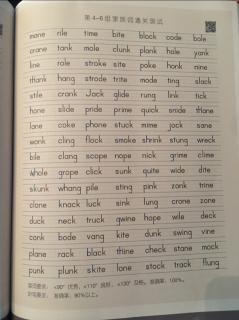 第4-6组家族词通关测试
mane rile time bite block code bole
crane tank male clunk plank hale yank
line role stroke site poke honk nine
thank hang strode trite mode ting slack
stile crank Jack glide rung link tick
hone slide pride prime quick snide thane
lane coke phone stuck mime jock sane
wonk cling flock smoke shrink stung wreck
bile clang scope nope nick grime clime
whole grope click sunk quite wide dite
skunk whang pile sting pink zonk trine
clone knack luck sink lung crone zone
duck neck truck gwine hope wile deck
conk bode vang kite dunk swing vine
plane rack black thine check stane mock
punk plunk skite lone stock track flung